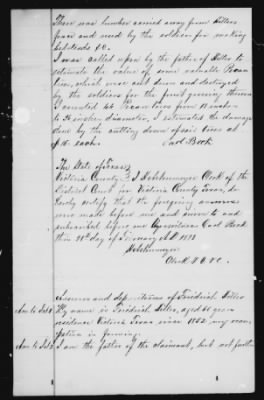 There was lumber carried away from Fillers
place and used by the soldiers for making
bedsteads &c.
I was called upon by the father of Filler to
estimate the value of some valuable Pecan
trees, which were cut down and destroyed
by the soldiers for the fruit growing thereon
I counted 44 Pecan trees from 18 inches
to 26 inches diameter, I estimated the damage
done by the cutting down of said trees at
$ 10. each. Carl Bock
The State of Texas
Victoria County I J Clerk of the
District Court for Victoria County Texas, do
hereby certify that the foregoing answers
were made before me and sworn to and
subscribed before me by witness Carl Bock
this 28th day of February A.D. 1878
Clerk D.C.V.C.
Answers and depositions of Friedrich Filler
Ans to Int 1 My name is Friedrich Filler, aged 60 years
residence Victoria Texas since 1852 my occu-
pation is farming.
Ans to Int 2 I am the father of the claimant, but not further